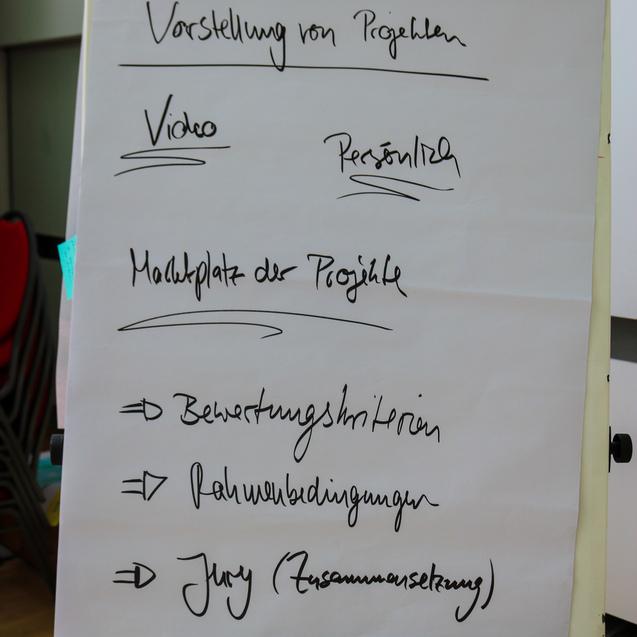 Vorstellung von Projekten
Video Persönlich
Marktplatz der Projekte
⇒ Bewertungskriterien
⇒ Rahmenbedingungen
⇒ Jury (Zusammensetzung)